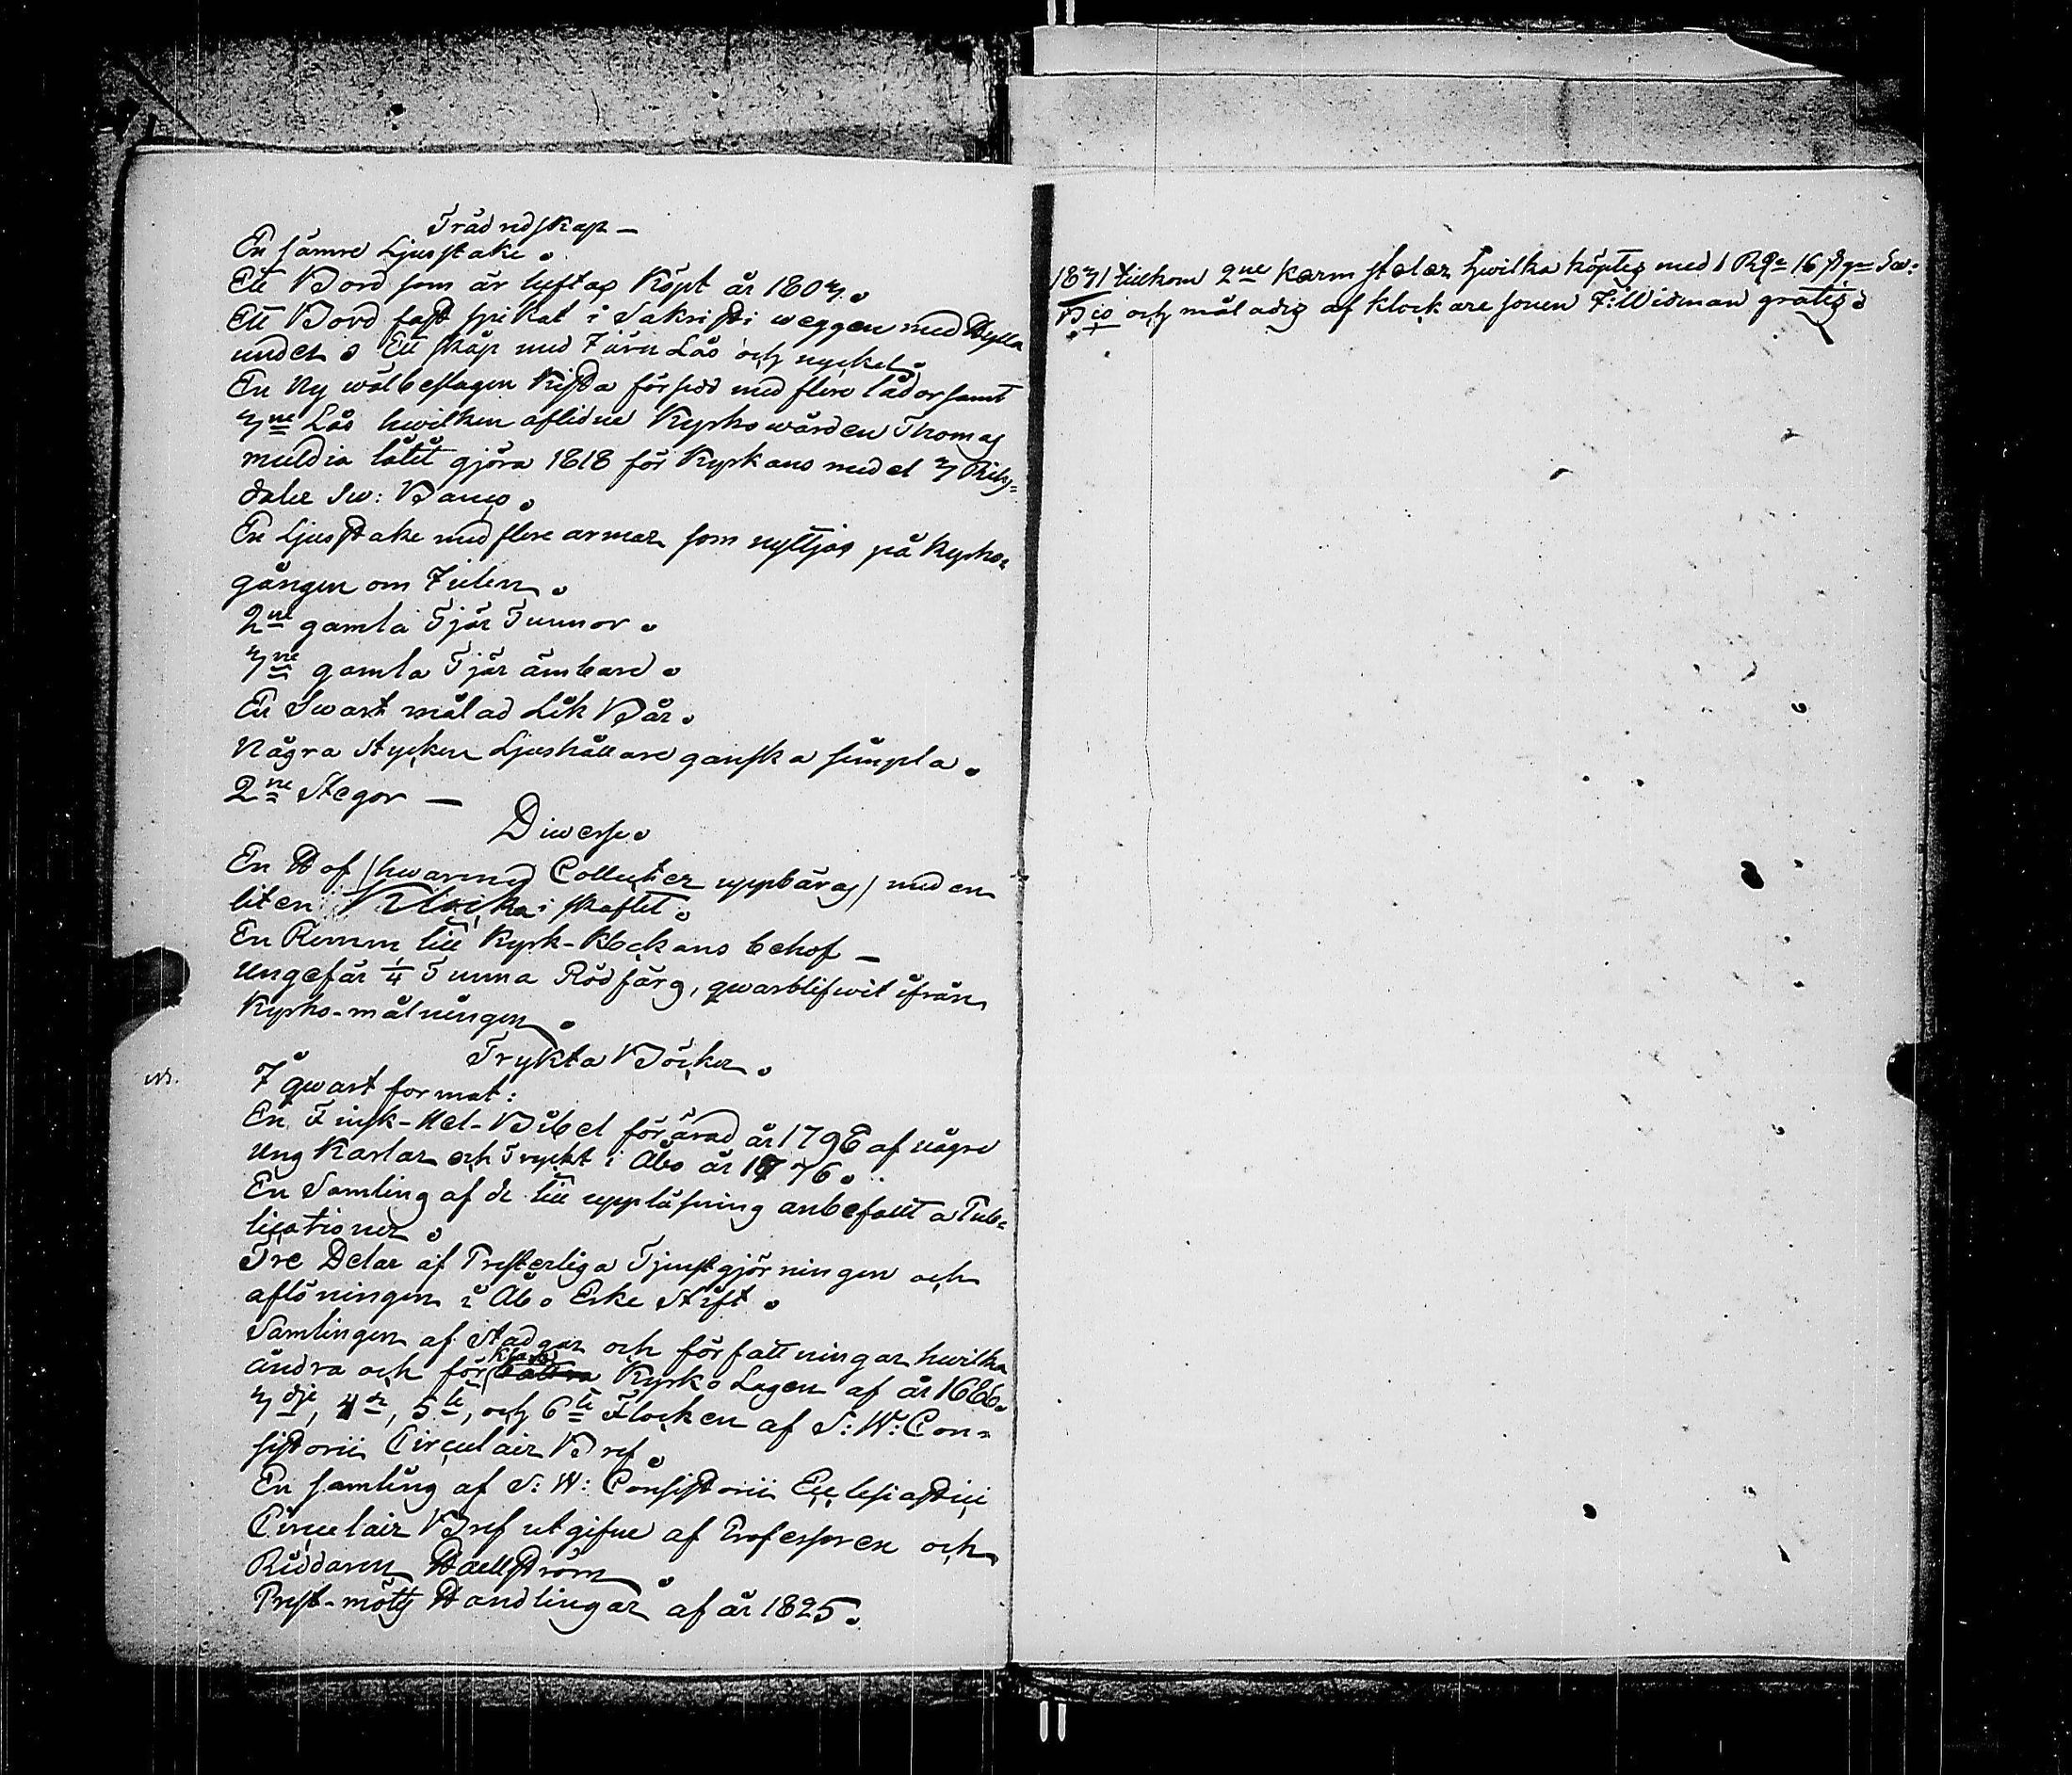 Trädredskap —
En sämre Ljusstake.
Ett Bord som är lyftas Köpt år 1803.
Ett Bord fast spikat i Sakristi weggen med Hylla
under. Ett skåp med Järn Lås och nyckel.
En Ny wälbeslagen Kista försedd med flere lådor samt
3ne Lås hwilken aflidne Kyrkowärden Thomas
Muldia låtit gjöra 1818 för Kyrkans medel 3 Riks=
daler Sw: Banco.
En Ljusstake med flere armar som nyttjas på Kyrko=
gången om Julen.
2ne gamla Tjär Tunnor.
3ne gamla Tjär ämbare.
En Swart målad Lik Bår.
Några Stycken Ljushållare ganska simpla.
2ne Stegor —
Diwerse.
En Hof (hwarmed Collecter uppbäras) med en
liten Klocka i skaftet.
En Remm till Kyrk-Klockans behof —
Ungefär 1/4 Tunna Rödfärg, qwarblifwit ifrån
Kyrko-målningen.
Tryckta Böcker.
I qwart format:
En Finsk-Hel-Bibel förärad år 1798 af några
Ung Karlar och Tryckt i Åbo år 1776.
En Samling af de till uppläsning anbefallta Pub=
licationer.
Tre Delar af Presterliga Tjenstgjörningen och
aflöningen i Åbo Erke Stift.
Samlingen af Stadgar och författningar hwilka
ändra och förklara Kyrko Lagen af år 1686.
3dje, 4de, 5te, och 6te Flocken af S: W: Con=
sistorii Circulair Bref.
En samling af S: W: Consistorii Ecclesiastici
Circulair Bref utgifne af Professoren och
Riddaren Haellström.
Prest-möts Handlingar af år 1825.
1831 tillkom 2ne Karm stolar hwilka köptes med 1 Rd 16 s Sw:
Bco och målades af klockare sonen J: Widman gratis.